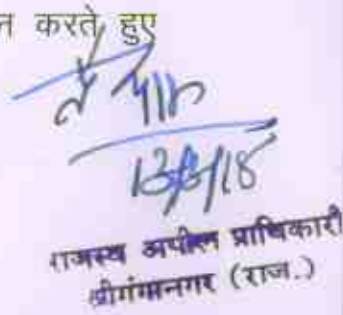 करते हुए
13/3/18
राजस्व अपील प्राधिकारी
श्रीगंगानगर (राज.)